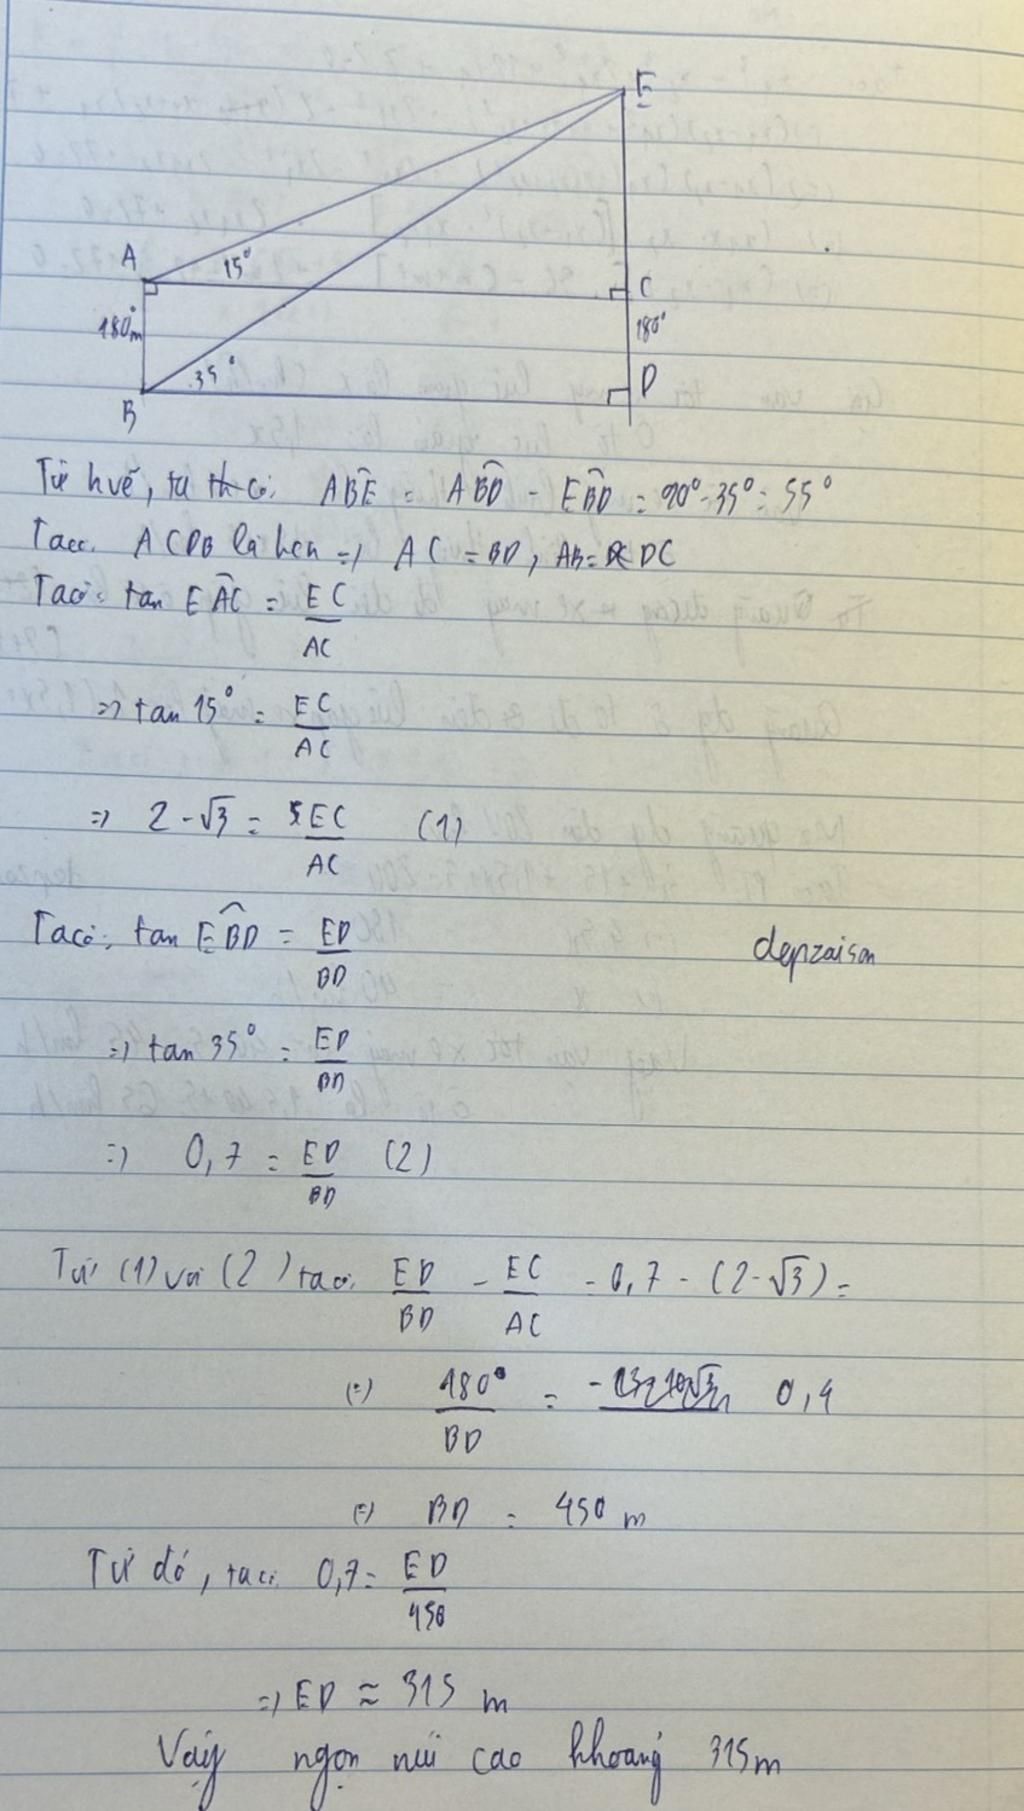 E
A
15°
C
180m
180°
35°
D
B
Từ hvẽ, ta th có: ABE = ABD - EBD = 90° - 35° = 55°
Ta có: ACDB là hcn => AC = BD, AB = DC
Ta có: tan EAC = EC/AC
=> tan 15° = EC/AC
=> 2 - √3 = EC/AC (1)
Ta có: tan EBD = ED/BD
depzaison
=> tan 35° = ED/BD
=> 0,7 = ED/BD (2)
Từ (1) và (2) ta có: ED/BD - EC/AC = 0,7 - (2 - √3) =
(=) 180°/BD = 0,4
(=) BD = 450 m
Từ đó, ta có: 0,7 = ED/450
=> ED ≈ 315 m
Vậy ngọn núi cao khoảng 315m